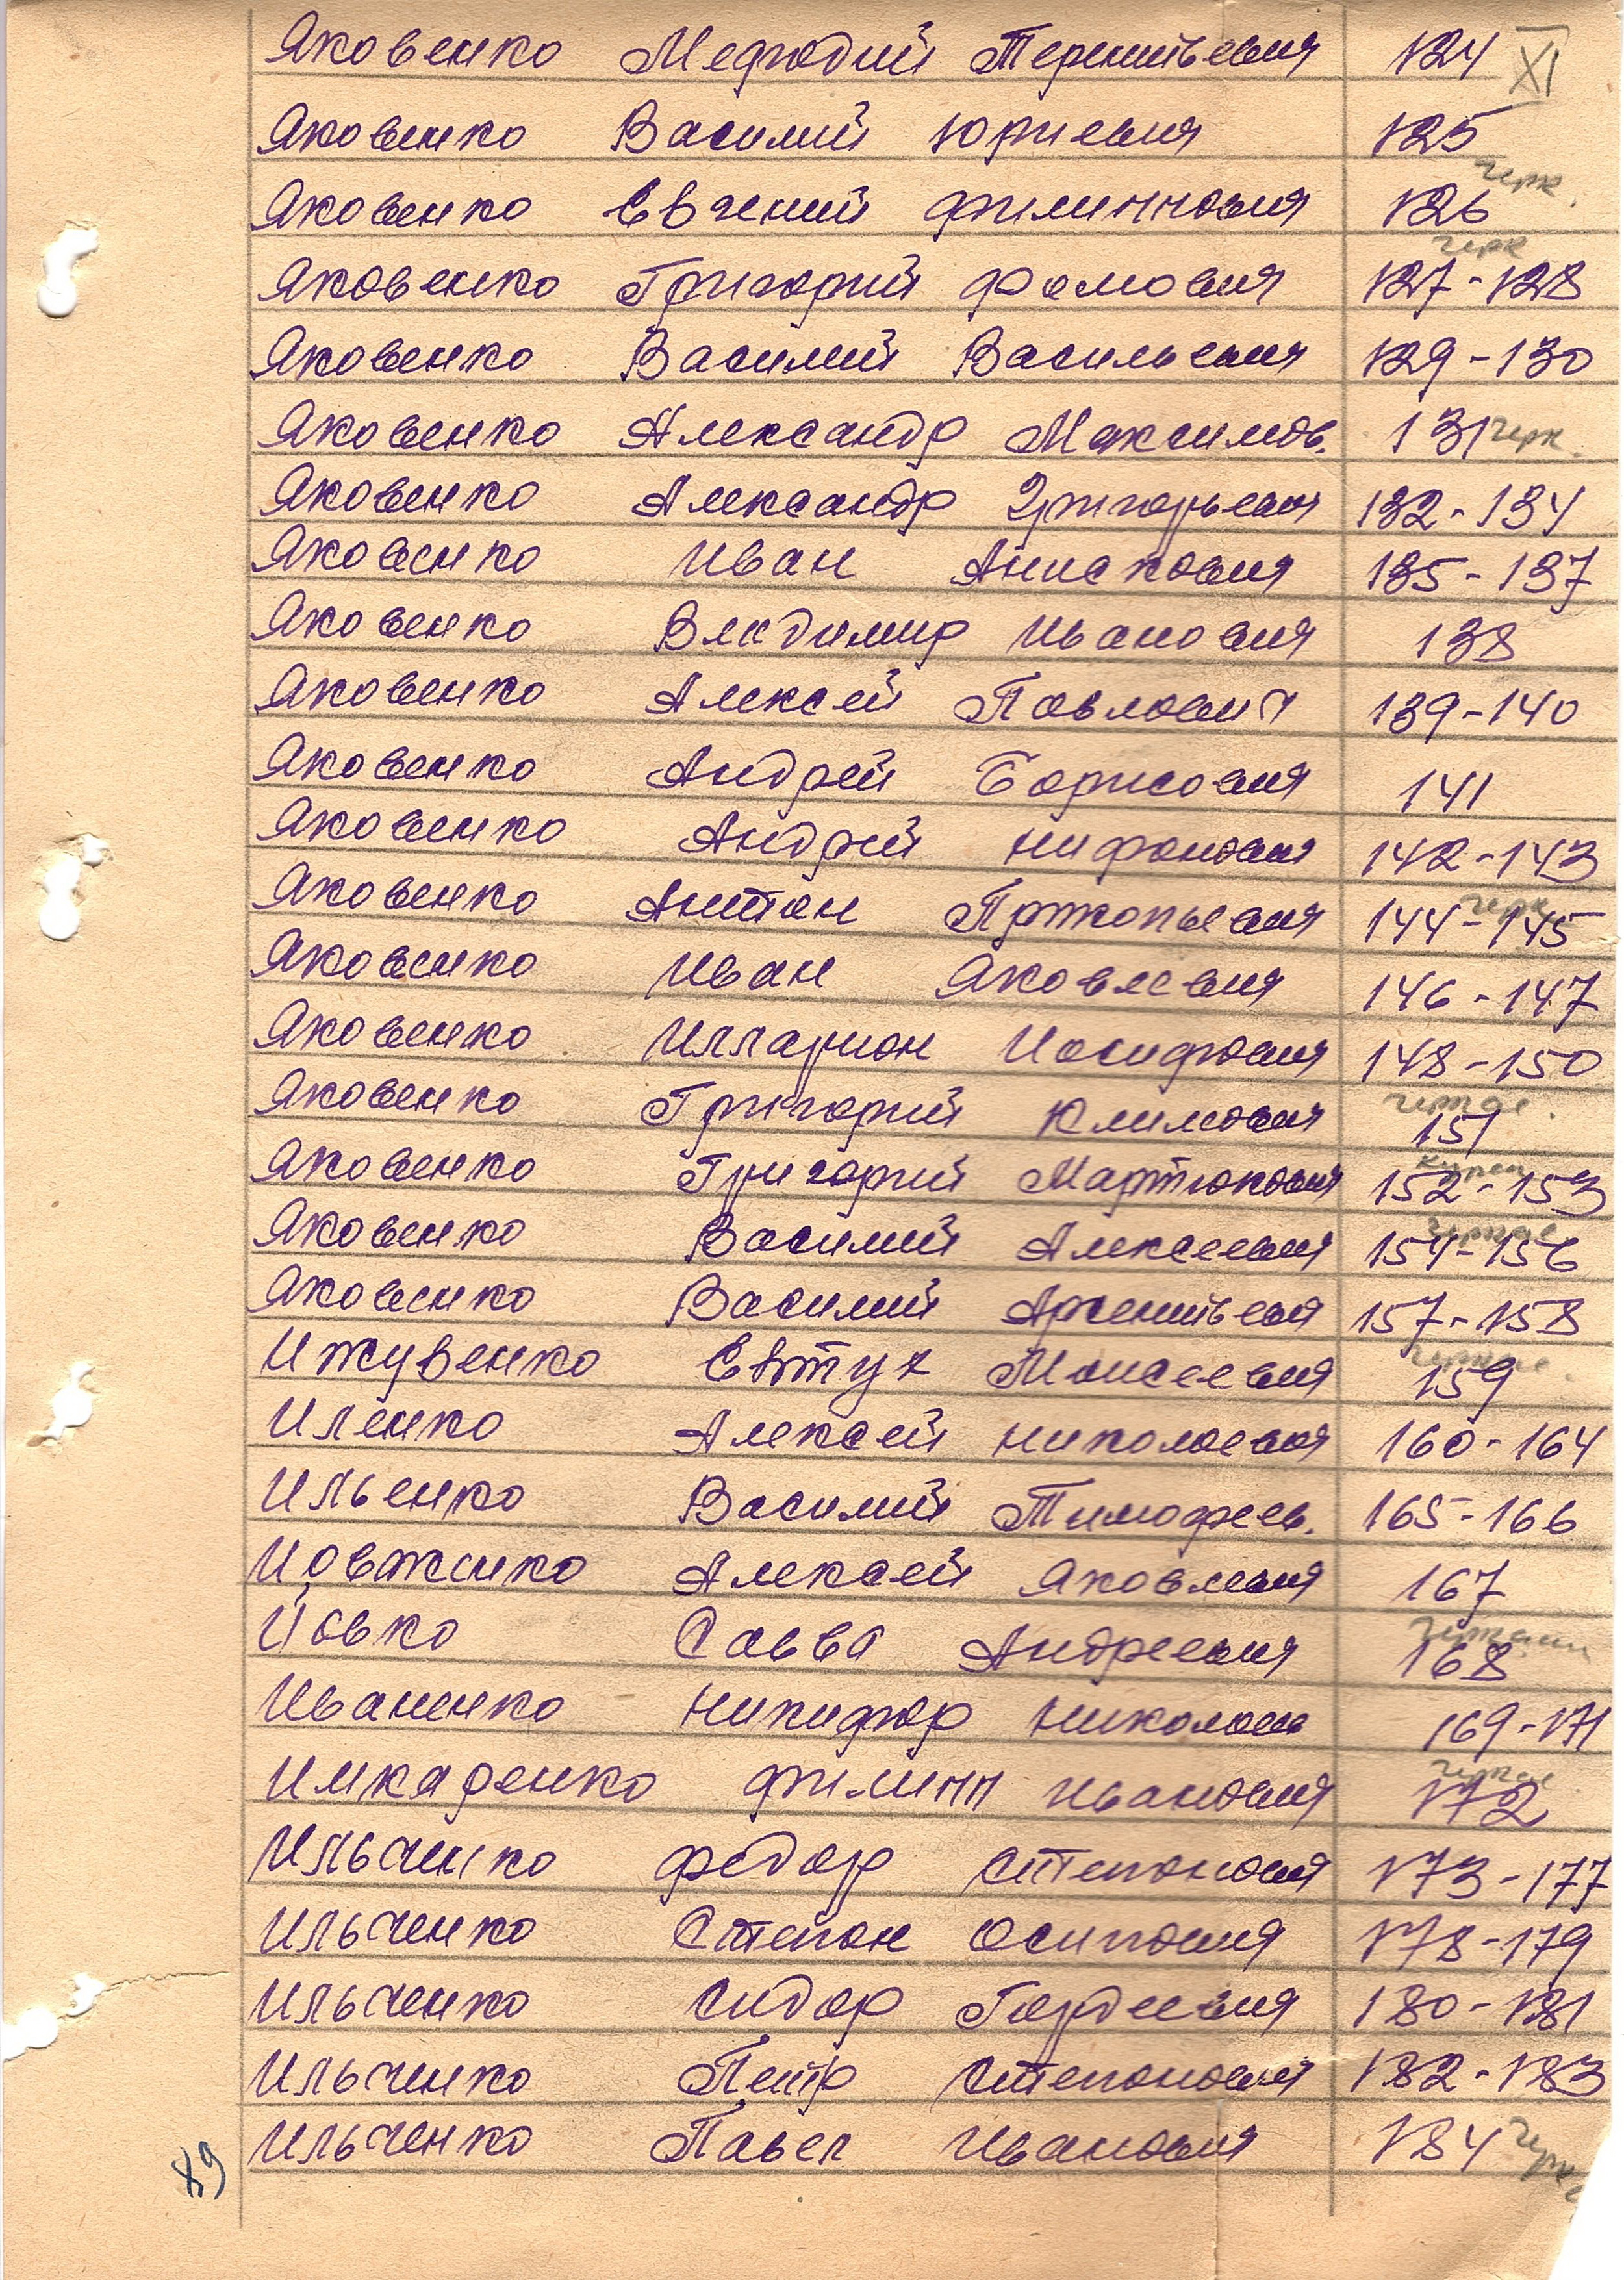 Яковенко Мефодий Терентьевич 124 XI
Яковенко Василий Юриевич 125
черк.
Яковенко Евгений Филиппович 126
черк
Яковенко Григорий Фомович 127-128
Яковенко Василий Васильевич 129-130
Яковенко Александр Максимов. 131 черк.
Яковенко Александр Григорьевич 132-134
Яковенко Иван Анисkович 135-137
Яковенко Владимир Иванович 138
Яковенко Алексей Павлович 139-140
Яковенко Андрей Борисович 141
Яковенко Андрей Нифонович 142-143
черк
Яковенко Антон Прокопьевич 144-145
Яковенко Иван Яковлевич 146-147
Яковенко Илларион Иосифович 148-150
черкас.
Яковенко Григорий Климович 151
Яковенко Григорий Мартынович 152-153
черкас
Яковенко Василий Алексеевич 154-156
Яковенко Василий Арсентьевич 157-158
черкас.
Ижувенко Евтух Моисеевич 159
Иленко Алексей Николаевич 160-164
Ильенко Василий Тимофеев. 165-166
Иовженко Алексей Яковлевич 167
Иовко Савва Андреевич 168
Иваненко Никифор Николаев 169-171
черкас
Имкаденко Филипп Иванович 172
Ильченко Федор Степанович 173-177
Ильченко Степан Осипович 178-179
Ильченко Сидор Гордеевич 180-181
Ильченко Петр Степанович 182-183
Ильченко Павел Иванович 184 черк
89